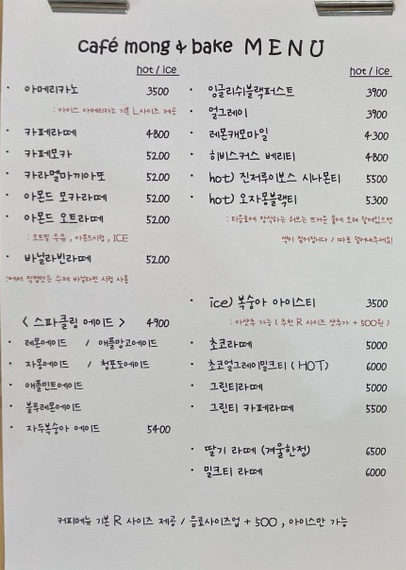 café mong & bake MENU
hot / ice
아메리카노 3500
: 아이스 아메리카노 기본 L사이즈 제공
카페라떼 4800
카페모카 5200
카라멜마끼아또 5200
아몬드 모카라떼 5200
아몬드 오트라떼 5200
: 오트밀 우유, 아몬드시럽, ICE
바닐라빈라떼 5200
직접만든 수제 바닐라빈 시럽 사용
< 스파클링 에이드 > 4900
레몬에이드 / 애플망고에이드
자몽에이드 / 청포도에이드
애플민트에이드
블루레몬에이드
자두복숭아 에이드 5400
hot / ice
잉글리쉬블랙퍼스트 3900
얼그레이 3900
레몬캐모마일 4300
히비스커스 베리티 4800
hot) 진저루이보스 시나몬티 5500
hot) 오자몽블랙티 5300
: 티음료에 장식하는 허브는 뜨거운 물에 오래 담겨있으면
색이 짙어집니다 / 따로 덜어내주세요!
ice) 복숭아 아이스티 3500
: 아샷추 가능 ( 추천 R 사이즈 샷추가 + 500원 )
초코라떼 5000
초코얼그레이밀크티 ( HOT) 6000
그린티라떼 5000
그린티 카페라떼 5500
딸기 라떼 (겨울한정) 6500
밀크티 라떼 6000
커피메뉴 기본 R 사이즈 제공 / 음료사이즈업 + 500 , 아이스만 가능